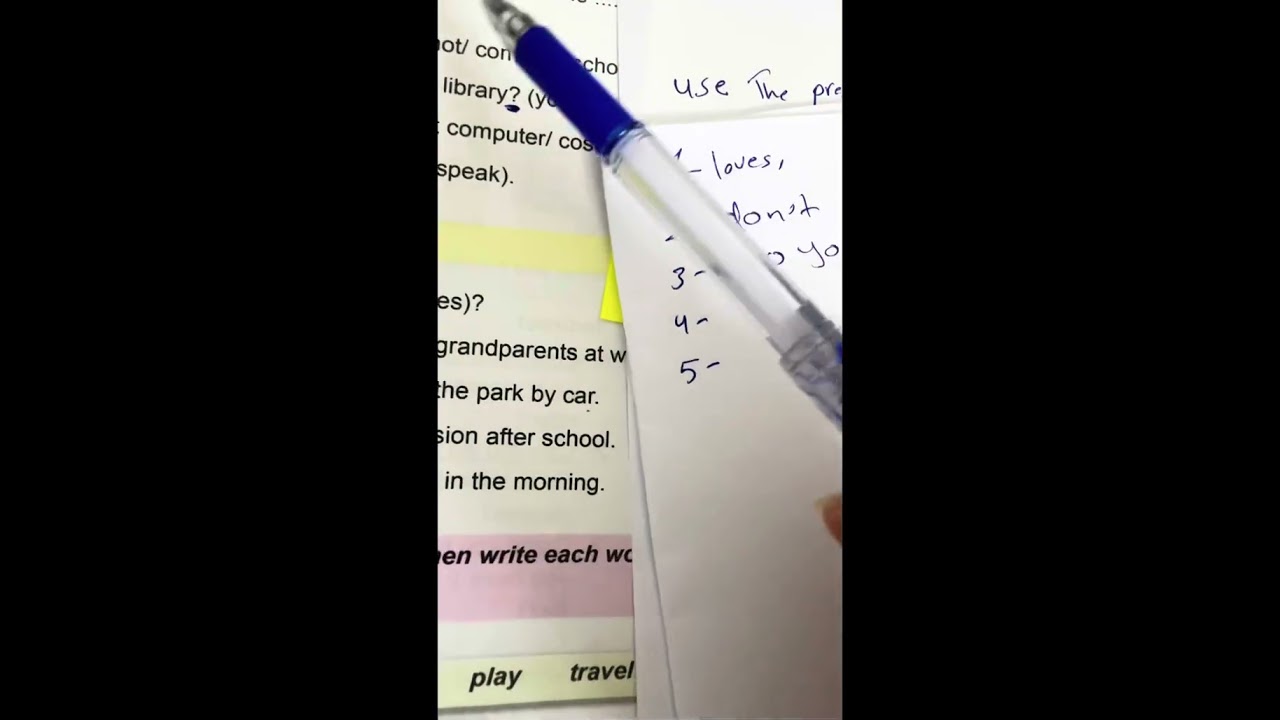 library? (
computer/
speak).
es)?
grandparents at w
the park by car.
sion after school.
in the morning.
en write each wo
play travel
use The pre
1- loves,
don't
3- yo
4-
5-